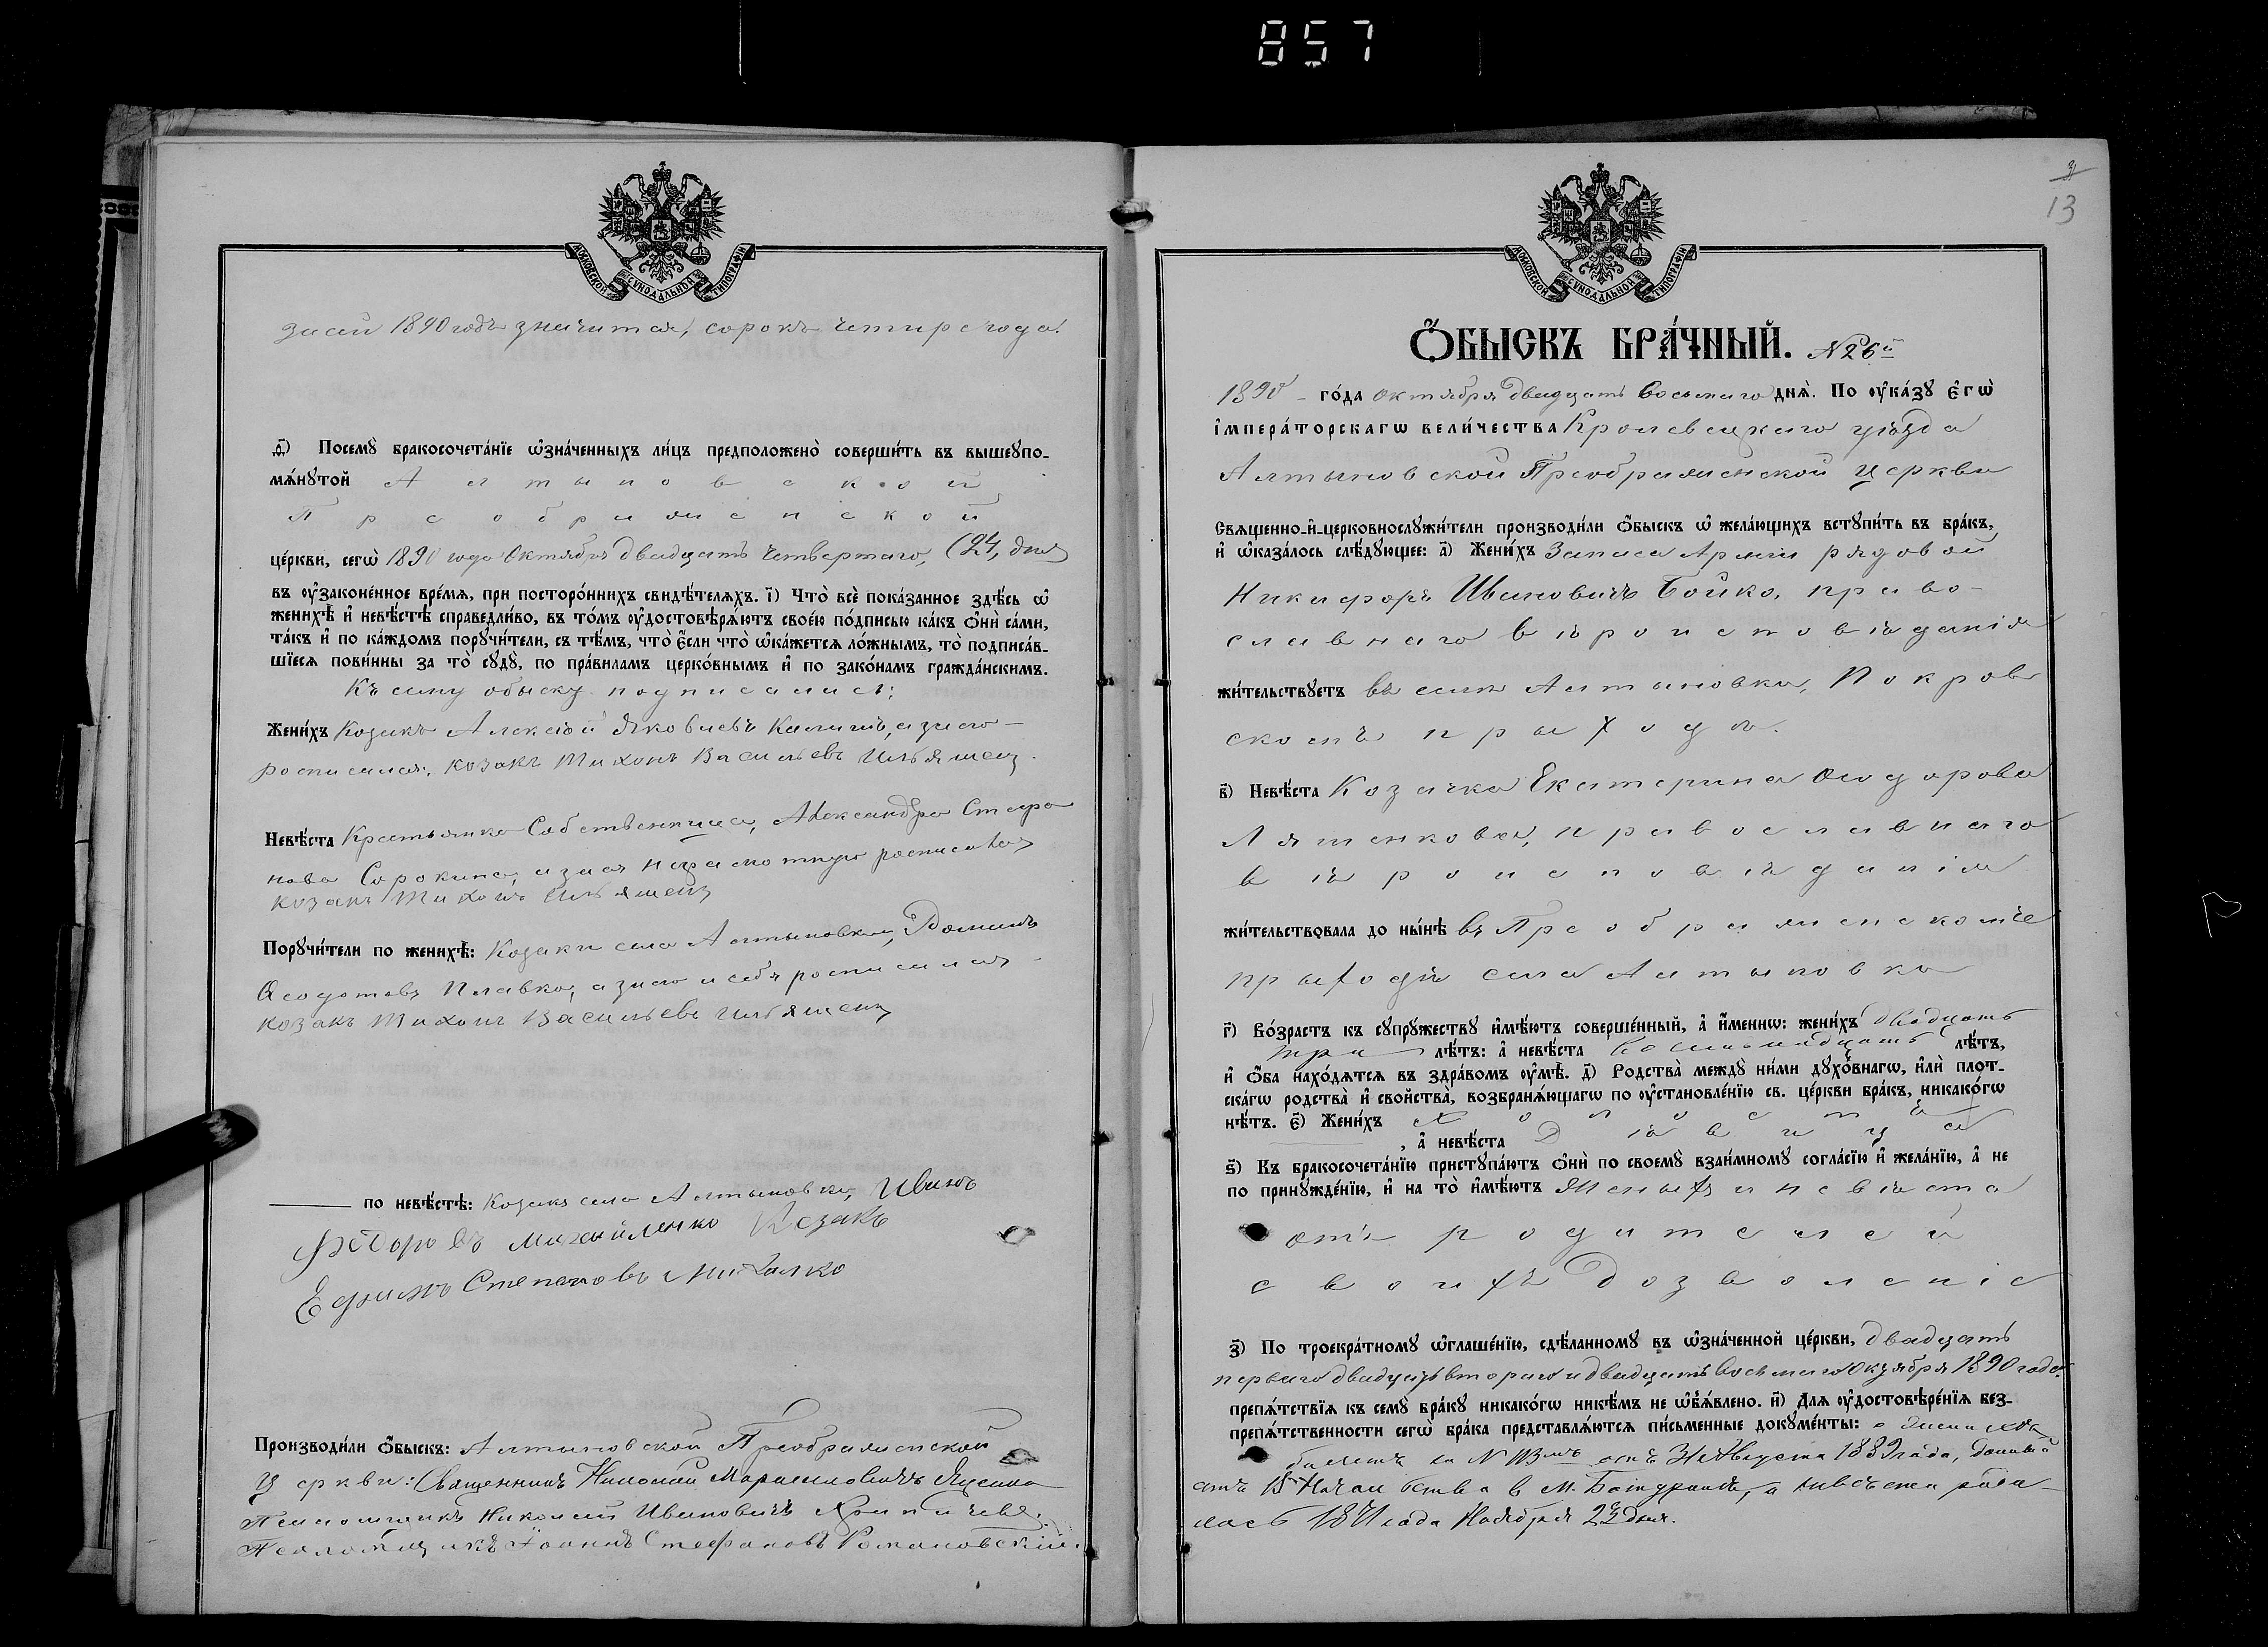 857
МОСКОВСКОЙ СѴНОДАЛЬНОЙ ТИПОГРАФІИ
за сей 1890 годъ значится, сорокъ четыре года.
д҃) Посемꙋ̀ бракосочета́нїе ѡ҆зна́ченныхъ ли́цъ предположено̀ соверши́ть въ вышеꙋпо-
мѧ́нꙋтой Алтыновской
Преображенской
це́ркви, сегѡ̀ 1890 года Октября двадцать четвертаго, (24, дня
въ ᲂу҆законе́нное вре́мѧ, при посторо́ннихъ свидѣ́телѧхъ. і҃) Что̀ всѐ пока́занное здѣ́сь ѡ҆
женихѣ̀ и҆ невѣ́стѣ справедли́во, въ то́мъ ᲂу҆достовѣрѧ́ютъ свое́ю по́дписью ка́къ ѻ҆нѝ са́ми,
та́къ и҆ по ка́ждомъ порꙋчи́тели, съ тѣ́мъ, что̀ є҆́сли что̀ ѡ҆ка́жетсѧ ло́жнымъ, то̀ подписа́в-
шїесѧ пови́нны за то̀ сꙋдꙋ̀, по пра́виламъ церко́внымъ и҆ по зако́намъ гражда́нскимъ.
Къ сему обыску подписались:
Жени́хъ Козакъ Алексѣй Яковлевъ Калишъ, а за его
росписался, козакъ Тихонъ Васильевъ Ильяшенъ.
Невѣ́ста Крестьянка Собственница, Александра Стефа
нова Сорокина, а за нея неграмотную росписался
козакъ Тихонъ Ильяшенъ
Порꙋчи́тели по женихѣ̀: Козаки села Алтыновки, Романъ
Ѳеодотовъ Плавко, а за его и себя росписался
козакъ Тихонъ Васильевъ Ильяшенъ
по невѣ́стѣ: Козакъ села Алтыновки, Иванъ
Ѳедоровъ Михайленко Козакъ
Ефимъ Степановъ Михалко
Производи́ли ѻ҆́быскъ: Алтыновской Преображенской
Церкви: Священникъ Николай
Псаломщикъ Николай Ивановичъ
Псаломщикъ Іоаннъ Стефановъ Романовскій.
13
МОСКОВСКОЙ СѴНОДАЛЬНОЙ ТИПОГРАФІИ
Ѻ҆́БЫСКЪ БРА́ЧНЫЙ. №26й
1890 го́да Октября двадцать восьмаго днѧ̀. По ᲂу҆ка́зꙋ Є҆гѡ̀
І҆мпера́торскагѡ Вели́чества Кролевецкаго уѣзда
Алтыновской Преображенской церкви
Свѧщенно-и҆-церковнослꙋжи́тели производи́ли ѻ҆́быскъ ѡ҆ жела́ющихъ встꙋпи́ть въ бра́къ,
и҆ ѡ҆каза́лось слѣ́дꙋющее: а҃) Жени́хъ Запаса Арміи рядовой
Никифоръ Ивановичъ Бойко, право-
славнаго вѣроисповѣданія
жи́тельствꙋетъ въ селѣ Алтыновки, Покров
скомъ приходѣ.
в҃) Невѣ́ста Козачка Екатерина Ѳеодорова
Ляшенкова, православнаго
вѣроисповѣданія
жи́тельствовала до ны́нѣ въ Преображенскомъ
приходѣ села Алтыновки
г҃) Во́зрастъ къ сꙋпрꙋ́жествꙋ и҆мѣ́ютъ соверше́нный, а҆ и҆́меннѡ: жени́хъ двадцать
три лѣ́тъ: а҆ невѣ́ста восемнадцать лѣ́тъ,
и҆ ѻ҆́ба нахо́дѧтсѧ въ здра́вомъ ᲂу҆мѣ̀. д҃) Родства̀ междꙋ̀ ни́ми дꙋхо́внагѡ, и҆лѝ плот-
ска́гѡ родства̀ и҆ свойства̀, возбранѧ́ющагѡ по ᲂу҆становле́нїю св. це́ркви бра́къ, никако́гѡ
нѣ́тъ. є҃) Жени́хъ Холостъ
, а҆ невѣ́ста Дѣвица
ѕ҃) Къ бракосочета́нїю пристꙋпа́ютъ ѻ҆нѝ по своемꙋ̀ взаи́мномꙋ согла́сїю и҆ жела́нїю, а҆ не
по принꙋжде́нїю, и҆ на то̀ и҆мѣ́ютъ Женихъ и невѣста
отъ родителей
своихъ дозволеніе
з҃) По троекра́тномꙋ ѡ҆глаше́нїю, сдѣ́ланномꙋ въ ѡ҆зна́ченной це́ркви, двадцать
перваго двадцать втораго и двадцать восьмаго Октября 1890 года.
препѧ́тствїѧ къ семꙋ̀ бра́кꙋ никако́гѡ никѣ́мъ не ѡ҆б̾ѧ́влено. и҃) Длѧ ᲂу҆достовѣре́нїѧ без-
препѧ́тственности сегѡ̀ бра́ка представлѧ́ютсѧ пи́сьменные докꙋме́нты:
билетъ за № отъ 31 Августа 1889 года, данный
отъ Начальства в М. Батуринѣ, а невѣста роди-
лась 1871 года Ноября 22 дня.